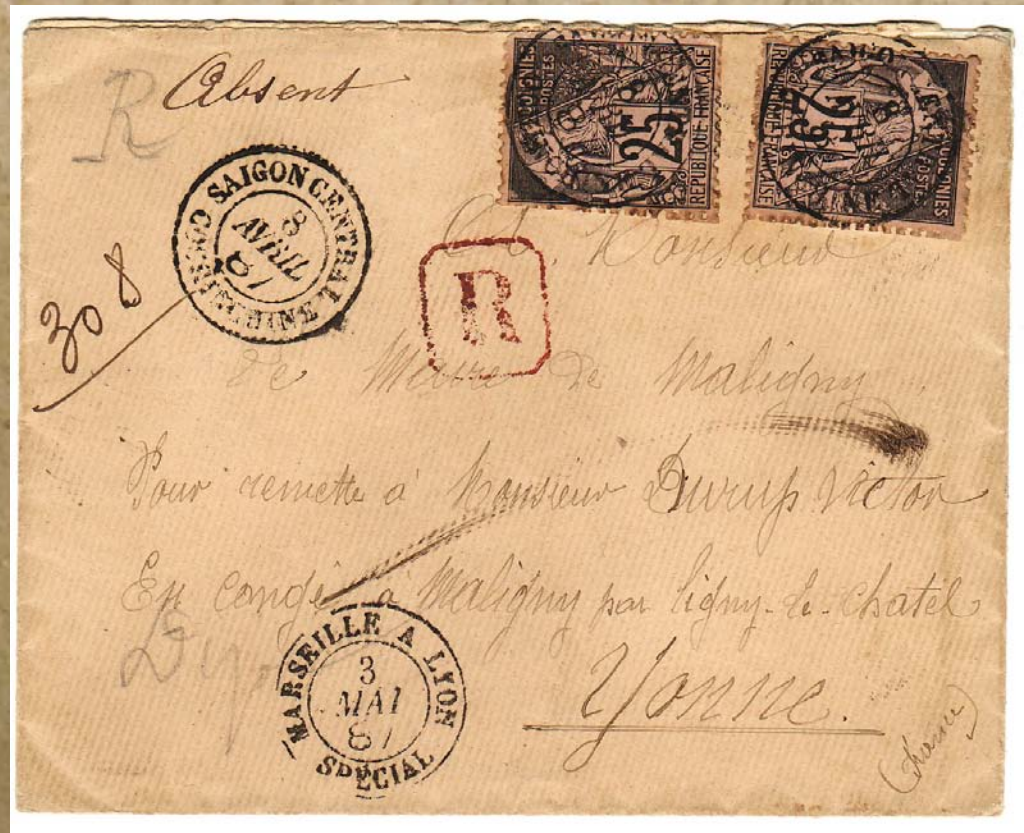 R
Absent
COLONIES
POSTES
25
RÉPUBLIQUE FRANÇAISE
COLONIES
POSTES
25
RÉPUBLIQUE FRANÇAISE
SAIGON CENTRAL
8
AVRIL
87
COCHINCHINE
308
R
A Monsieur
Le Maire de Maligny
Pour remettre à Monsieur Durup Victor
En congé à Maligny par Ligny-le-Chatel
Yonne.
(France)
MARSEILLE A LYON
3
MAI
87
SPÉCIAL